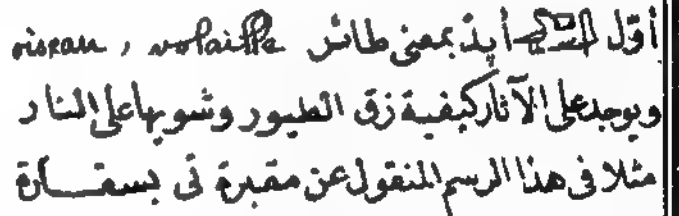 أوّل أپد بمعنى طائر oiseau , volaille
ويوجد على الآثار كيفية زق الطيور وشويها على النار
مثلا فى هذا الرسم المنقول عن مقبرة تى بسقــارة